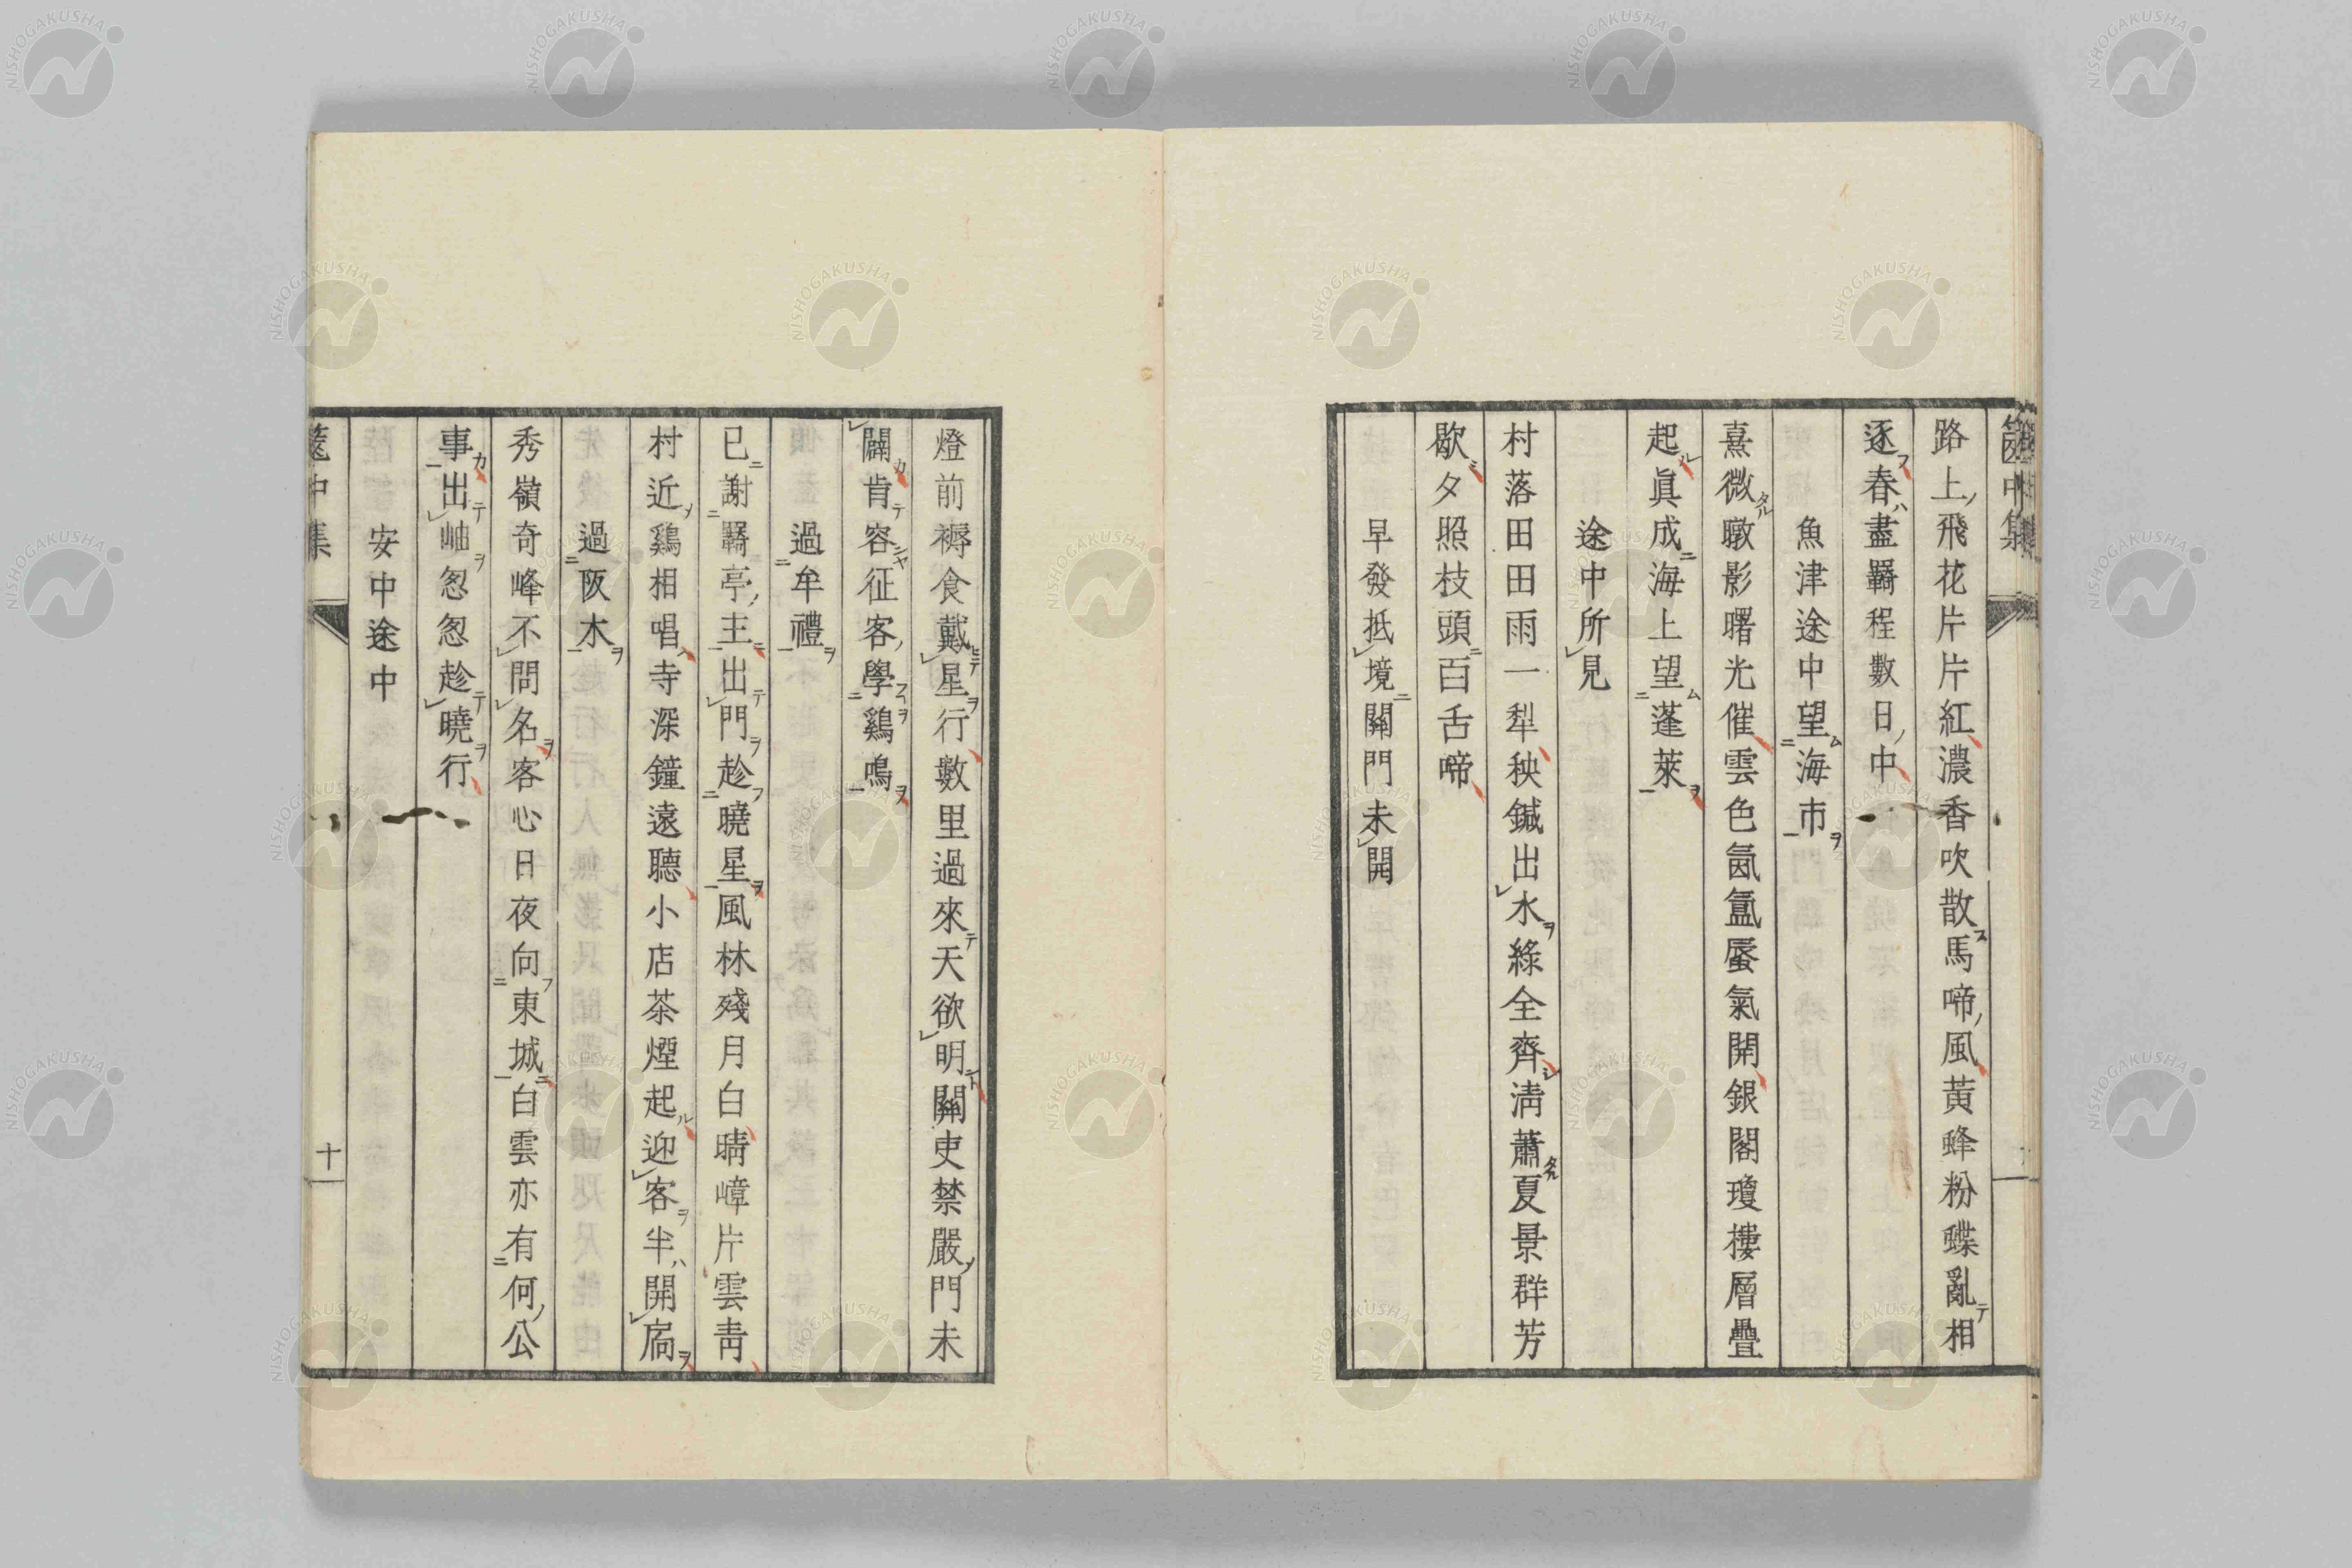 路上飛花片片紅濃香吹散馬啼風黃蜂粉蝶亂相
逐春盡羇程數日中
魚津途中望海市
熹微暾影曙光催雲色氤氳蜃氣開銀閣瓊樓層疊
起眞成海上望蓬萊
途中所見
村落田田雨一犁秧鍼出水綠全齊淸蕭夏景群芳
歇夕照枝頭百舌啼
早發抵境關門未開
燈前褥食戴星行數里過來天欲明關吏禁嚴門未
闢肯容征客學鷄鳴
過牟禮
已謝羇亭主出門趁曉星風林殘月白晴嶂片雲靑
村近鷄相唱寺深鐘遠聽小店茶煙起迎客半開扃
過阪木
秀嶺奇峰不問名客心日夜向東城白雲亦有何公
事出岫怱怱趁曉行
安中途中
中集
十
NISHOGAKUSHA